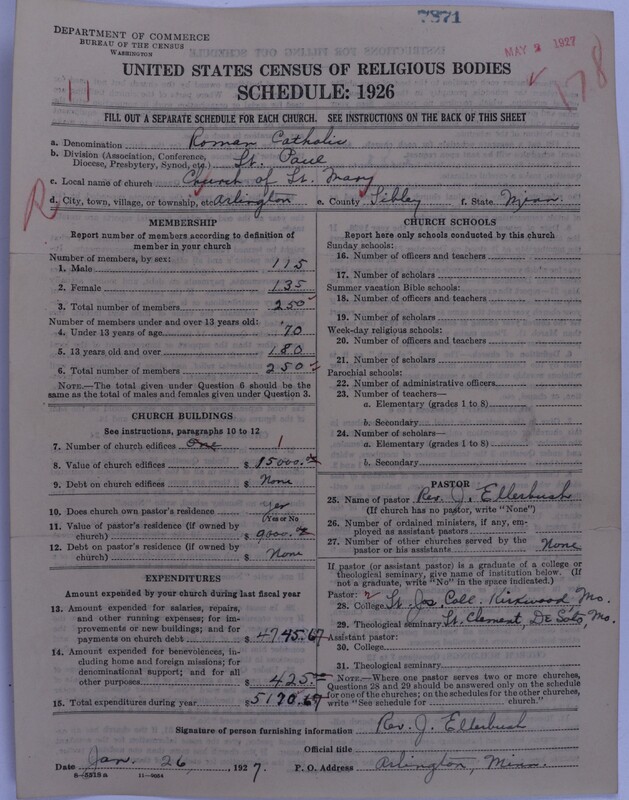 7871
DEPARTMENT OF COMMERCE
BUREAU OF THE CENSUS
WASHINGTON
MAY 2 1927
178
UNITED STATES CENSUS OF RELIGIOUS BODIES
SCHEDULE: 1926
FILL OUT A SEPARATE SCHEDULE FOR EACH CHURCH. SEE INSTRUCTIONS ON THE BACK OF THIS SHEET
a. Denomination Roman Catholic
b. Division (Association, Conference, Diocese, Presbytery, Synod, etc.) St. Paul
c. Local name of church Church of St. Mary
R
d. City, town, village, or township, etc Arlington e. County Sibley f. State Minn.
MEMBERSHIP
Report number of members according to definition of
member in your church
Number of members, by sex:
1. Male 115
2. Female 135
3. Total number of members 250
Number of members under and over 13 years old:
4. Under 13 years of age 70
5. 13 years old and over 180
6. Total number of members 250
NOTE.—The total given under Question 6 should be
same as the total of males and females given under Question 3.
CHURCH BUILDINGS
See instructions, paragraphs 10 to 12
7. Number of church edifices One 1
8. Value of church edifices $ 15000.
9. Debt on church edifices $ None
10. Does church own pastor's residence yes
(Yes or No
11. Value of pastor's residence (if owned by
church) $ 9000.
12. Debt on pastor's residence (if owned by
church) $ None
EXPENDITURES
Amount expended by your church during last fiscal year
13. Amount expended for salaries, repairs,
and other running expenses; for im-
provements or new buildings; and for
payments on church debt $ 4745.67
14. Amount expended for benevolences, in-
cluding home and foreign missions; for
denominational support; and for all
other purposes $ 425.
15. Total expenditures during year $ 5170.67
CHURCH SCHOOLS
Report here only schools conducted by this church
Sunday schools:
16. Number of officers and teachers
17. Number of scholars
Summer vacation Bible schools:
18. Number of officers and teachers
19. Number of scholars
Week-day religious schools:
20. Number of officers and teachers
21. Number of scholars
Parochial schools:
22. Number of administrative officers
23. Number of teachers—
a. Elementary (grades 1 to 8)
b. Secondary
24. Number of scholars—
a. Elementary (grades 1 to 8)
b. Secondary
PASTOR
25. Name of pastor Rev. J. Ellerbush
(If church has no pastor, write "None")
26. Number of ordained ministers, if any, em-
ployed as assistant pastors
27. Number of other churches served by the
pastor or his assistants None
If pastor (or assistant pastor) is a graduate of a college or
theological seminary, give name of institution below. (If
not a graduate, write "No" in the space indicated.)
Pastor:
28. College St. Jos. Coll. Kirkwood Mo.
29. Theological seminary St. Clement, De Soto, Mo.
Assistant pastor:
30. College
31. Theological seminary
NOTE.—Where one pastor serves two or more churches,
Questions 28 and 29 should be answered only on the schedule
for one of the churches; on the schedules for the other churches,
write "See schedule for church."
Signature of person furnishing information Rev. J. Ellerbush
Official title
Date Jan. 26, 1927. P. O. Address Arlington, Minn.
8-5518a 11-9684